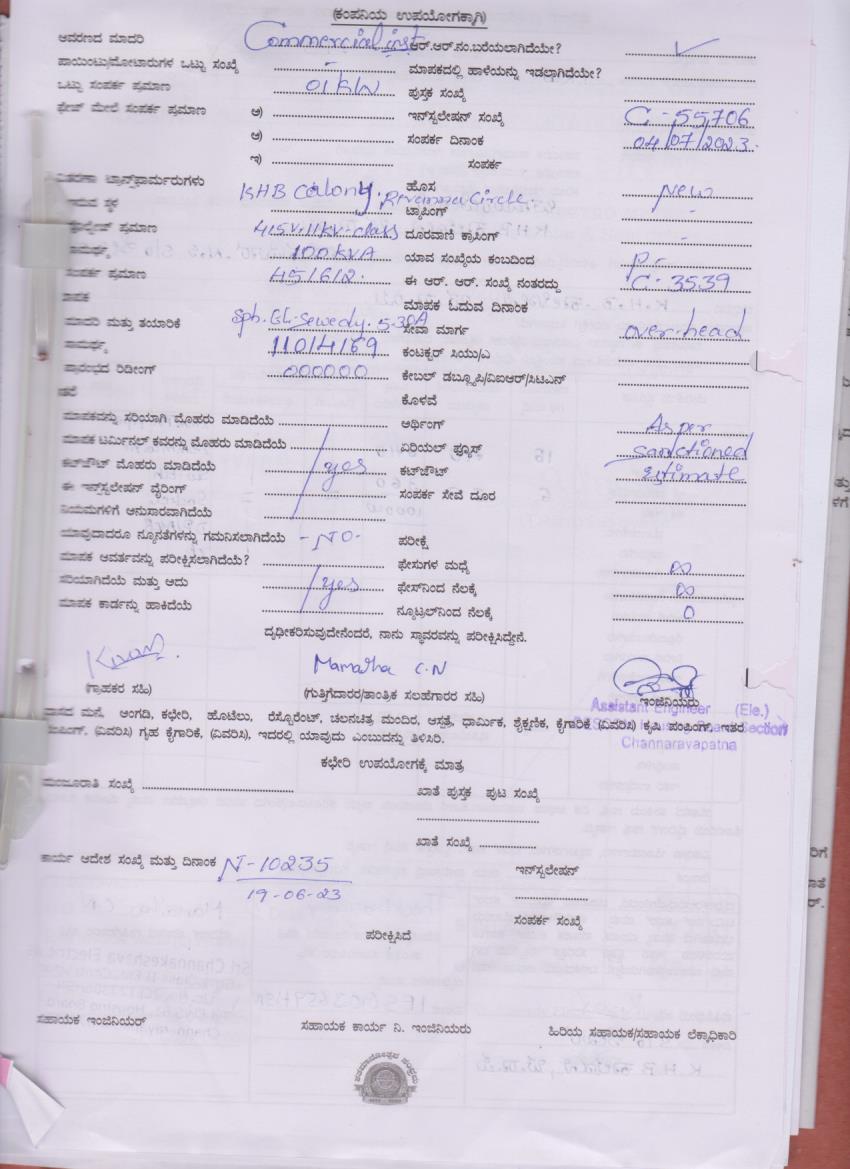 (ಕಂಪನಿಯ ಉಪಯೋಗಕ್ಕಾಗಿ)
ಆವರಣದ ಮಾದರಿ Commercial inst ಆರ್.ಆರ್.ನಂ.ಬರೆಯಲಾಗಿದೆಯೇ? ✓
ಪಾಯಿಂಟು/ಮೋಟಾರುಗಳ ಒಟ್ಟು ಸಂಖ್ಯೆ - ಮಾಪಕದಲ್ಲಿ ಹಾಳೆಯನ್ನು ಇಡಲಾಗಿದೆಯೇ?
ಒಟ್ಟು ಸಂಪರ್ಕ ಪ್ರಮಾಣ 01 KW ಪುಸ್ತಕ ಸಂಖ್ಯೆ
ಫೇಜ್ ಮೇಲೆ ಸಂಪರ್ಕ ಪ್ರಮಾಣ ಅ) ಇನ್‌ಸ್ಟಲೇಷನ್ ಸಂಖ್ಯೆ C - 55706
ಆ) ಸಂಪರ್ಕ ದಿನಾಂಕ 04/07/2023.
ಇ) ಸಂಪರ್ಕ
ವಿತರಣಾ ಟ್ರಾನ್ಸ್‌ಫಾರ್ಮರುಗಳು ಹೊಸ New
ಇರುವ ಸ್ಥಳ KHB Colony. Revanna Circle. ಟ್ಯಾಪಿಂಗ್ -
ಪ್ರಮಾಣ 415V.11kv-class ದೂರವಾಣಿ ಕ್ರಾಸಿಂಗ್ -
ಸಾಮರ್ಥ್ಯ 100 KVA ಯಾವ ಸಂಖ್ಯೆಯ ಕಂಬದಿಂದ P -
ಸಂಪರ್ಕ ಪ್ರಮಾಣ 45/6/2. ಈ ಆರ್. ಆರ್. ಸಂಖ್ಯೆ ನಂತರದ್ದು C - 3539
ಮಾಪಕ ಮಾಪಕ ಓದುವ ದಿನಾಂಕ
ಮಾದರಿ ಮತ್ತು ತಯಾರಿಕೆ Sph. EL-Sewedy. 5-30A ಸೇವಾ ಮಾರ್ಗ over.head
ಸಾಮರ್ಥ್ಯ 11014169 ಕಂಟಕ್ಟರ್ ಸಿಯು/ಎ
ಪ್ರಾರಂಭದ ರಿಡೀಂಗ್ 000000 ಕೇಬಲ್ ಡಬ್ಲ್ಯೂಪಿ/ವಿಐಆರ್/ಸಿಟಿಎನ್
ಕೊಳವೆ
ಮಾಪಕವನ್ನು ಸರಿಯಾಗಿ ಮೊಹರು ಮಾಡಿದೆಯೆ ಅರ್ಥಿಂಗ್ As per
ಮಾಪಕ ಟರ್ಮಿನಲ್ ಕವರನ್ನು ಮೊಹರು ಮಾಡಿದೆಯೆ ಏರಿಯಲ್ ಫ್ಯೂಸ್ sanctioned
ಕಟ್‌ಔಟ್ ಮೊಹರು ಮಾಡಿದೆಯೆ yes ಕಟ್‌ಔಟ್ Estimate
ಈ ಇನ್‌ಸ್ಟಲೇಷನ್ ವೈರಿಂಗ್ ಸಂಪರ್ಕ ಸೇವೆ ದೂರ
ನಿಯಮಗಳಿಗೆ ಅನುಸಾರವಾಗಿದೆಯೆ
ಯಾವುದಾದರೂ ನ್ಯೂನತೆಗಳನ್ನು ಗಮನಿಸಲಾಗಿದೆಯೆ - NO - ಪರೀಕ್ಷೆ
ಮಾಪಕ ಆವರ್ತವನ್ನು ಪರೀಕ್ಷಿಸಲಾಗಿದೆಯೆ? ಫೇಸುಗಳ ಮಧ್ಯೆ ∞
ಸರಿಯಾಗಿದೆಯೆ ಮತ್ತು ಅದು yes ಫೇಸ್‌ನಿಂದ ನೆಲಕ್ಕೆ ∞
ಮಾಪಕ ಕಾರ್ಡನ್ನು ಹಾಕಿದೆಯೆ ನ್ಯೂಟ್ರಲ್‌ನಿಂದ ನೆಲಕ್ಕೆ 0
ದೃಢೀಕರಿಸುವುದೇನೆಂದರೆ, ನಾನು ಸ್ಥಾವರವನ್ನು ಪರೀಕ್ಷಿಸಿದ್ದೇನೆ.
Mamatha C.N
(ಗ್ರಾಹಕರ ಸಹಿ) (ಗುತ್ತಿಗೆದಾರರ/ತಾಂತ್ರಿಕ ಸಲಹೆಗಾರರ ಸಹಿ) ಇಂಜಿನಿಯರು
Assistant Engineer (Ele.)
ವಾಸದ ಮನೆ, ಅಂಗಡಿ, ಕಛೇರಿ, ಹೊಟೆಲು, ರೆಸ್ಟೋರೆಂಟ್, ಚಲನಚಿತ್ರ ಮಂದಿರ, ಆಸ್ಪತ್ರೆ, ಧಾರ್ಮಿಕ, ಶೈಕ್ಷಣಿಕ, ಕೈಗಾರಿಕೆ (ವಿವರಿಸಿ) ಕೃಷಿ ಪಂಪಿಂಗ್, ಇತರೆ
Section
ಪಂಪಿಂಗ್, (ವಿವರಿಸಿ) ಗೃಹ ಕೈಗಾರಿಕೆ, (ವಿವರಿಸಿ), ಇದರಲ್ಲಿ ಯಾವುದು ಎಂಬುದನ್ನು ತಿಳಿಸಿರಿ.
Channaravapatna
ಕಛೇರಿ ಉಪಯೋಗಕ್ಕೆ ಮಾತ್ರ
ಮಂಜೂರಾತಿ ಸಂಖ್ಯೆ ಖಾತೆ ಪುಸ್ತಕ ಪುಟ ಸಂಖ್ಯೆ
ಖಾತೆ ಸಂಖ್ಯೆ
ಕಾರ್ಯ ಆದೇಶ ಸಂಖ್ಯೆ ಮತ್ತು ದಿನಾಂಕ N-10235 ಇನ್‌ಸ್ಟಲೇಷನ್
19-06-23
ಸಂಪರ್ಕ ಸಂಖ್ಯೆ
ಪರೀಕ್ಷಿಸಿದೆ
ಸಹಾಯಕ ಇಂಜಿನಿಯರ್ ಸಹಾಯಕ ಕಾರ್ಯ ನಿ. ಇಂಜಿನಿಯರು ಹಿರಿಯ ಸಹಾಯಕ/ಸಹಾಯಕ ಲೆಕ್ಕಾಧಿಕಾರಿ